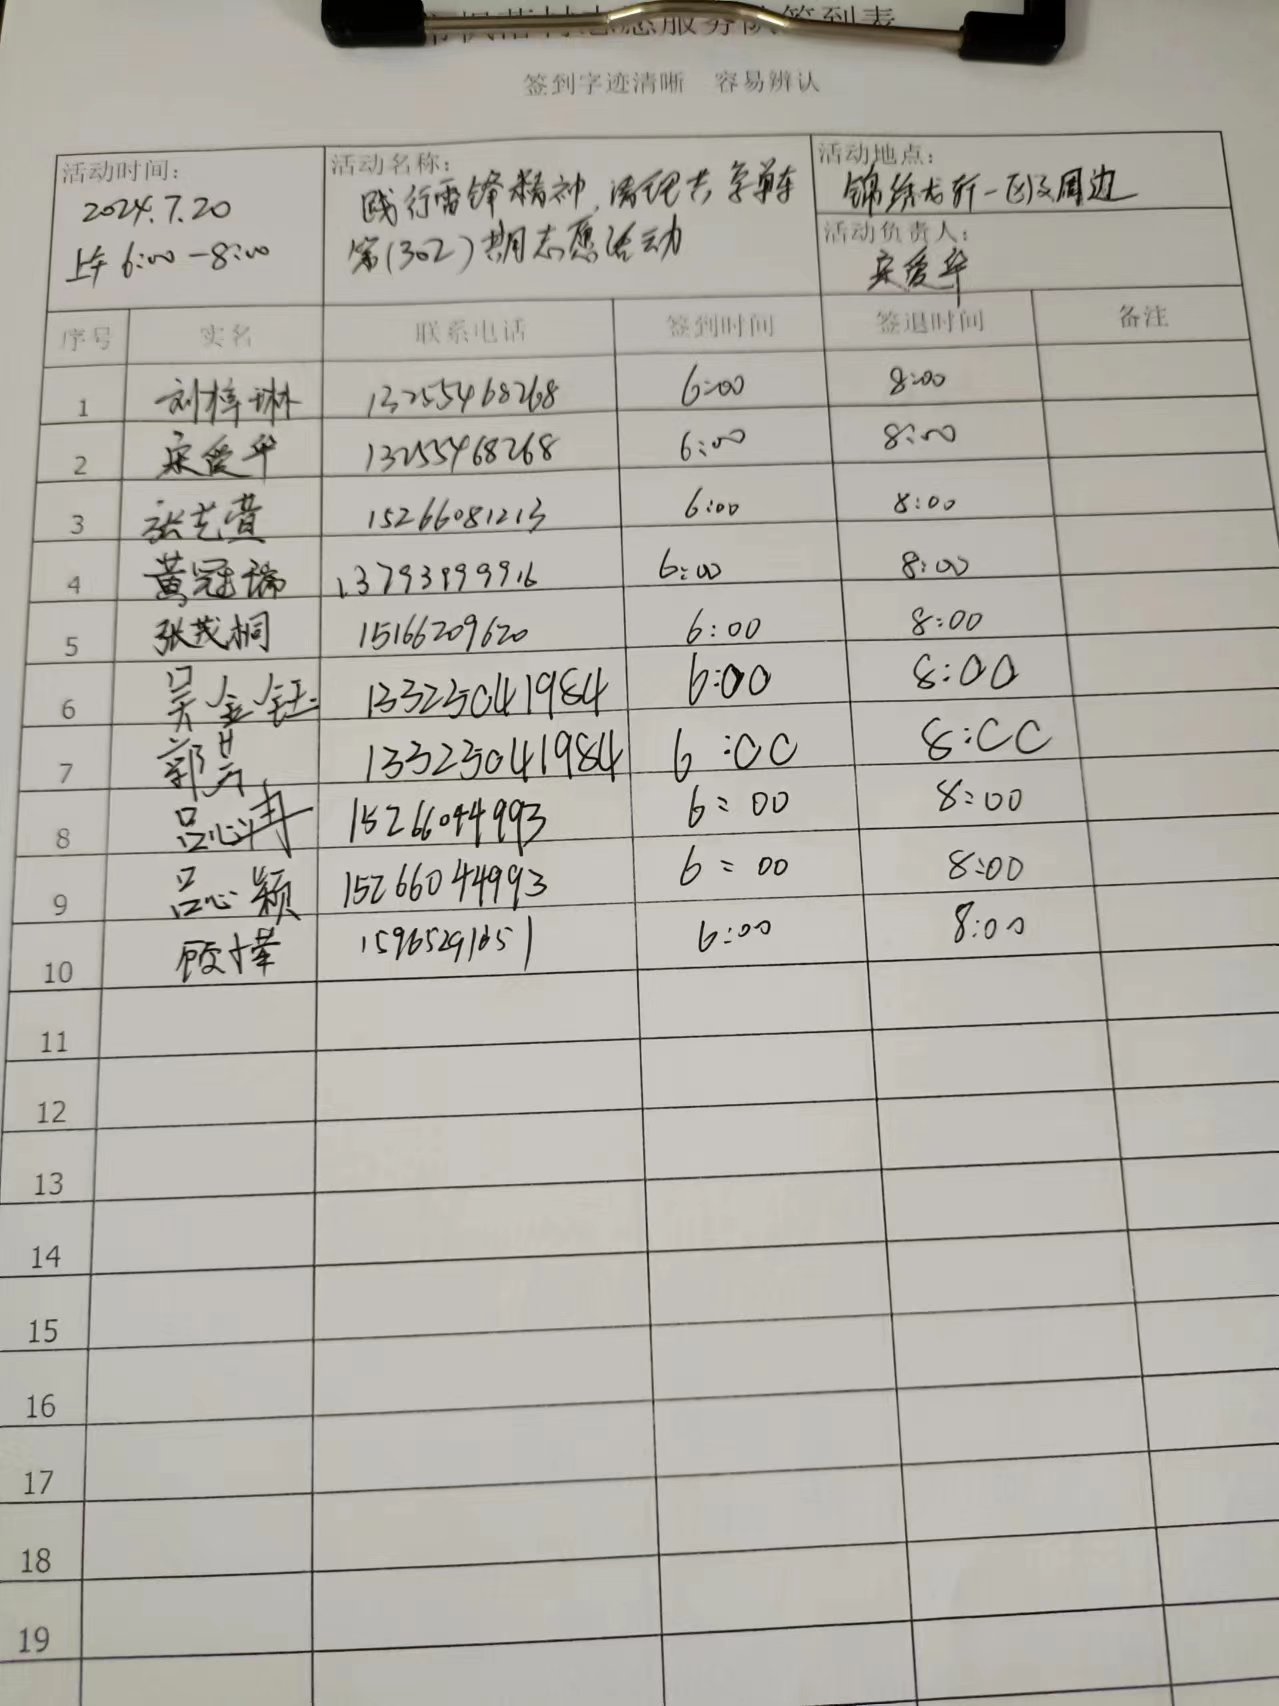 志愿服务队签到表
签到字迹清晰 容易辨认
活动时间:
2024.7.20
上午 6:00-8:00
活动名称:
践行雷锋精神,清理共享单车
第(302)期志愿活动
活动地点:
锦绣龙轩一区及周边
活动负责人:
宋爱华
序号 实名 联系电话 签到时间 签退时间 备注
1 刘梓琳 13255468268 6:00 8:00
2 宋爱华 13255468268 6:00 8:00
3 张艺萱 15266081213 6:00 8:00
4 黄冠瑞 13793899916 6:00 8:00
5 张茂桐 15166209620 6:00 8:00
6 吴金钰 13325041984 6:00 8:00
7 郭芳 13325041984 6:00 8:00
8 吕心冉 15266044993 6:00 8:00
9 吕心颖 15266044993 6:00 8:00
10 15965291651 6:00 8:00
11
12
13
14
15
16
17
18
19